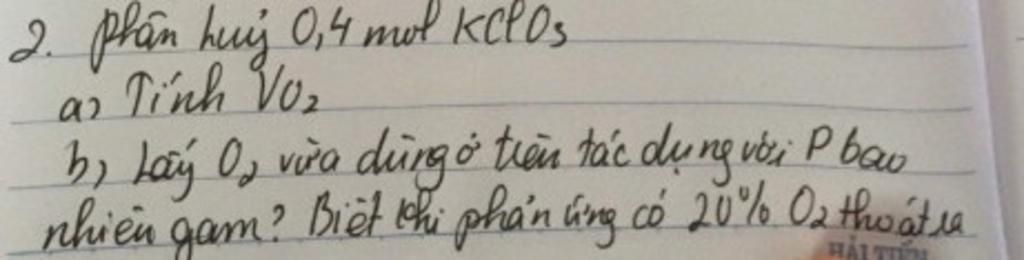 2. phân huỷ 0,4 mol KClO3
a) Tính VO2
b) Lấy O2 vừa dùng ở trên tác dụng với P bao
nhiêu gam? Biết khi phản ứng có 20% O2 thoát ra
HẢI TIẾN